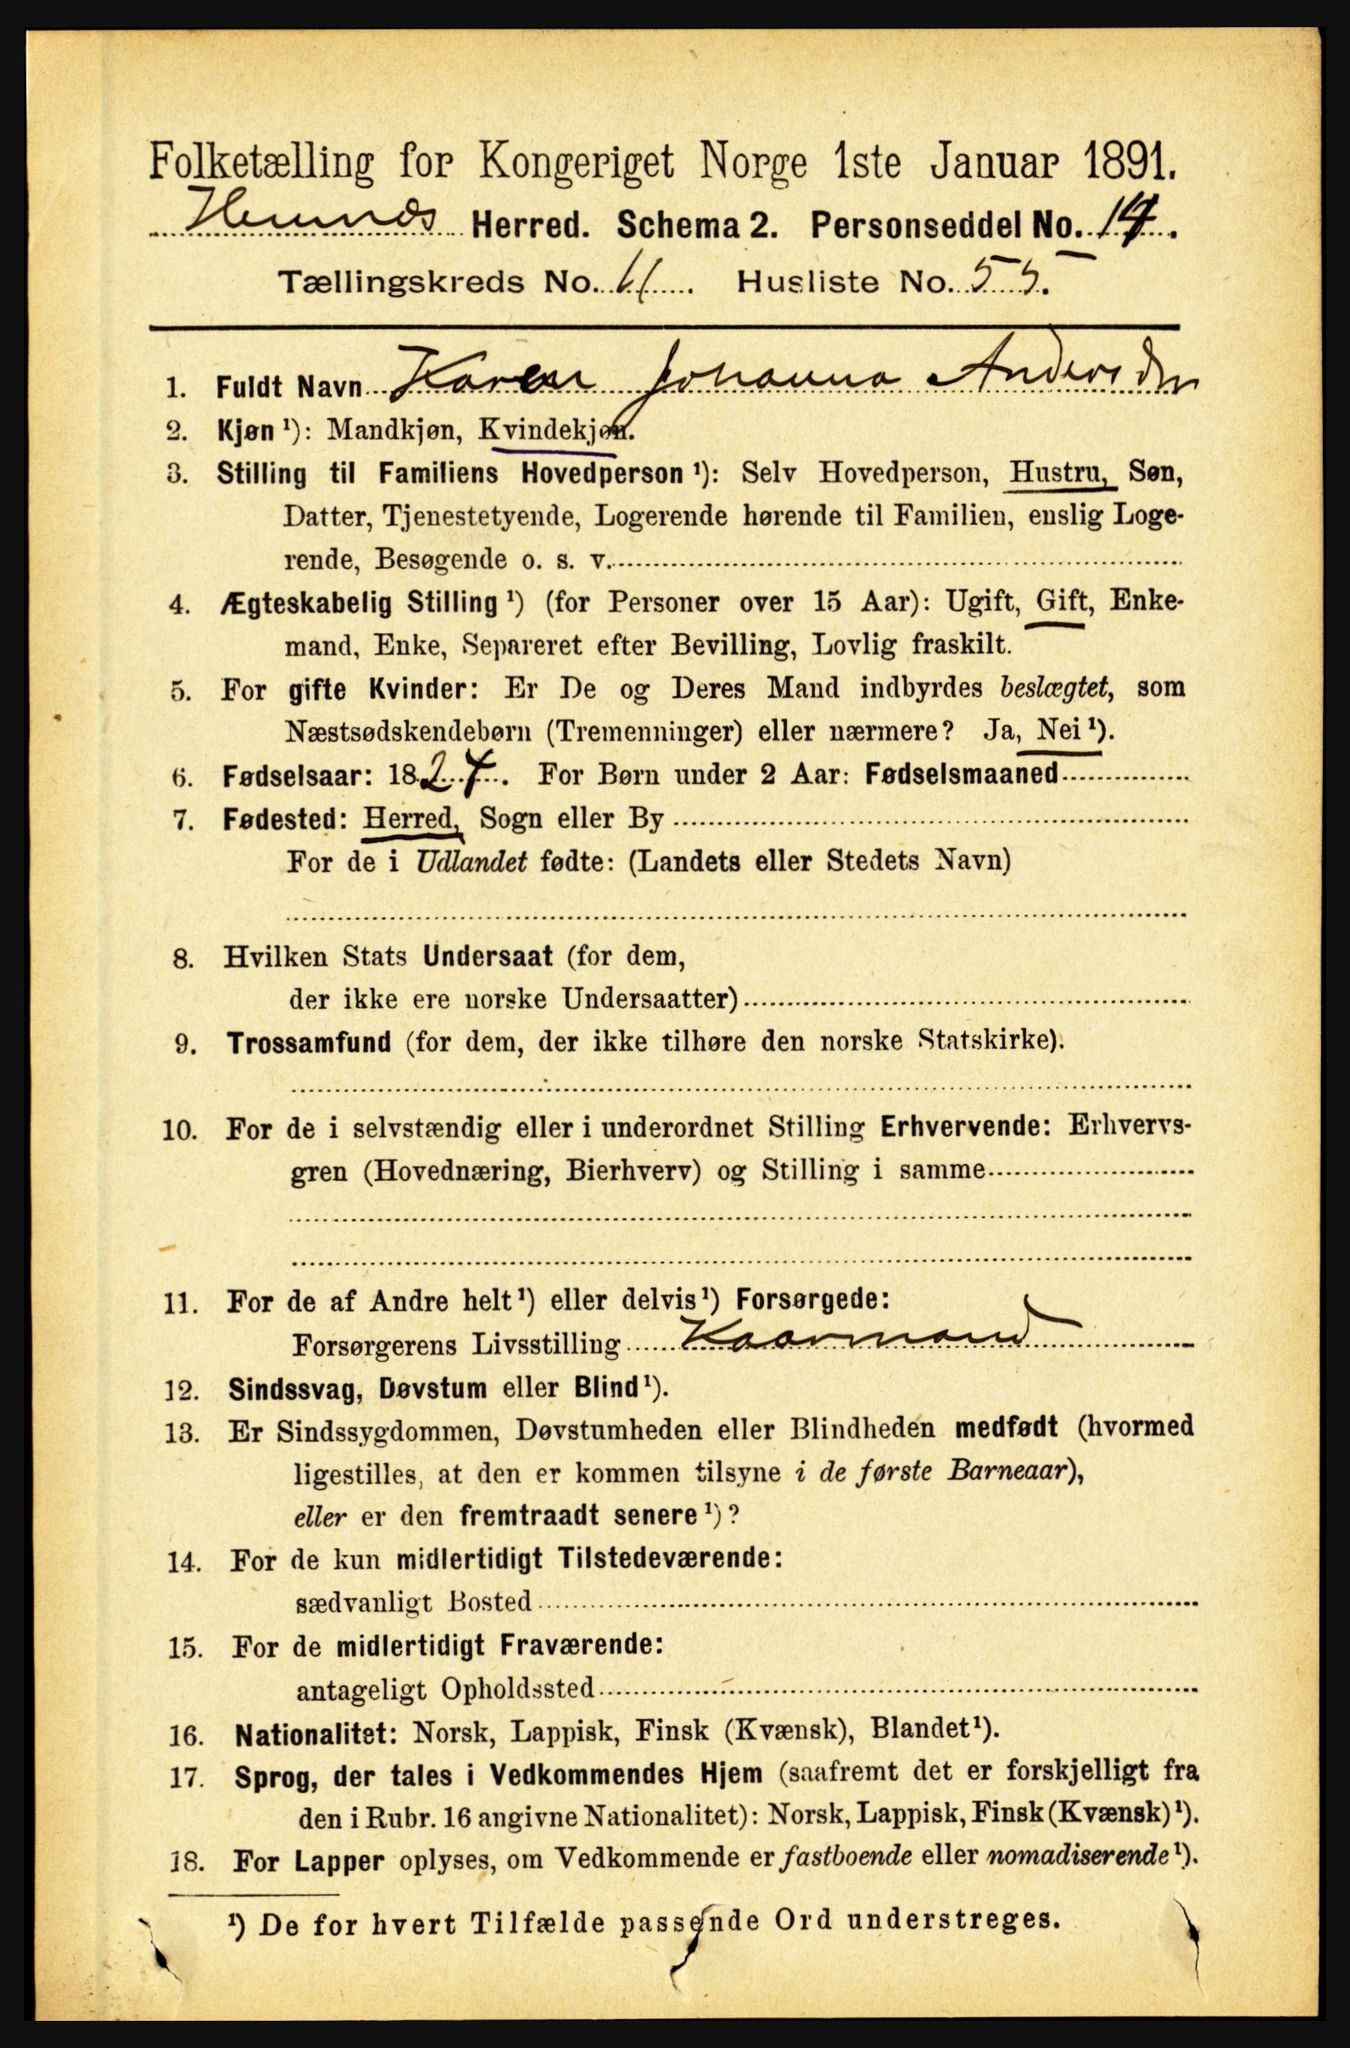 Folketælling for Kongeriget Norge 1ste Januar 1891.
Hemnæs Herred. Schema 2. Personseddel No. 14.
Tællingskreds No. 11. Husliste No. 55.
1. Fuldt Navn Karen Johanna Andersdtr
2. Kjøn ¹): Mandkjøn, Kvindekjøn.
3. Stilling til Familiens Hovedperson ¹): Selv Hovedperson, Hustru, Søn,
Datter, Tjenestetyende, Logerende hørende til Familien, enslig Loge-
rende, Besøgende o. s. v.
4. Ægteskabelig Stilling ¹) (for Personer over 15 Aar): Ugift, Gift, Enke-
mand, Enke, Separeret efter Bevilling, Lovlig fraskilt.
5. For gifte Kvinder: Er De og Deres Mand indbyrdes beslægtet, som
Næstsødskendebørn (Tremenninger) eller nærmere? Ja, Nei ¹).
6. Fødselsaar: 1827. For Børn under 2 Aar: Fødselsmaaned
7. Fødested: Herred, Sogn eller By
For de i Udlandet fødte: (Landets eller Stedets Navn)
8. Hvilken Stats Undersaat (for dem,
der ikke ere norske Undersaatter)
9. Trossamfund (for dem, der ikke tilhøre den norske Statskirke).
10. For de i selvstændig eller i underordnet Stilling Erhvervende: Erhvervs-
gren (Hovednæring, Bierhverv) og Stilling i samme
11. For de af Andre helt ¹) eller delvis ¹) Forsørgede:
Forsørgerens Livsstilling Kaarmand
12. Sindssvag, Døvstum eller Blind ¹).
13. Er Sindssygdommen, Døvstumheden eller Blindheden medfødt (hvormed
ligestilles, at den er kommen tilsyne i de første Barneaar),
eller er den fremtraadt senere ¹)?
14. For de kun midlertidigt Tilstedeværende:
sædvanligt Bosted
15. For de midlertidigt Fraværende:
antageligt Opholdssted
16. Nationalitet: Norsk, Lappisk, Finsk (Kvænsk), Blandet ¹).
17. Sprog, der tales i Vedkommendes Hjem (saafremt det er forskjelligt fra
den i Rubr. 16 angivne Nationalitet): Norsk, Lappisk, Finsk (Kvænsk) ¹).
18. For Lapper oplyses, om Vedkommende er fastboende eller nomadiserende ¹).
¹) De for hvert Tilfælde passende Ord understreges.